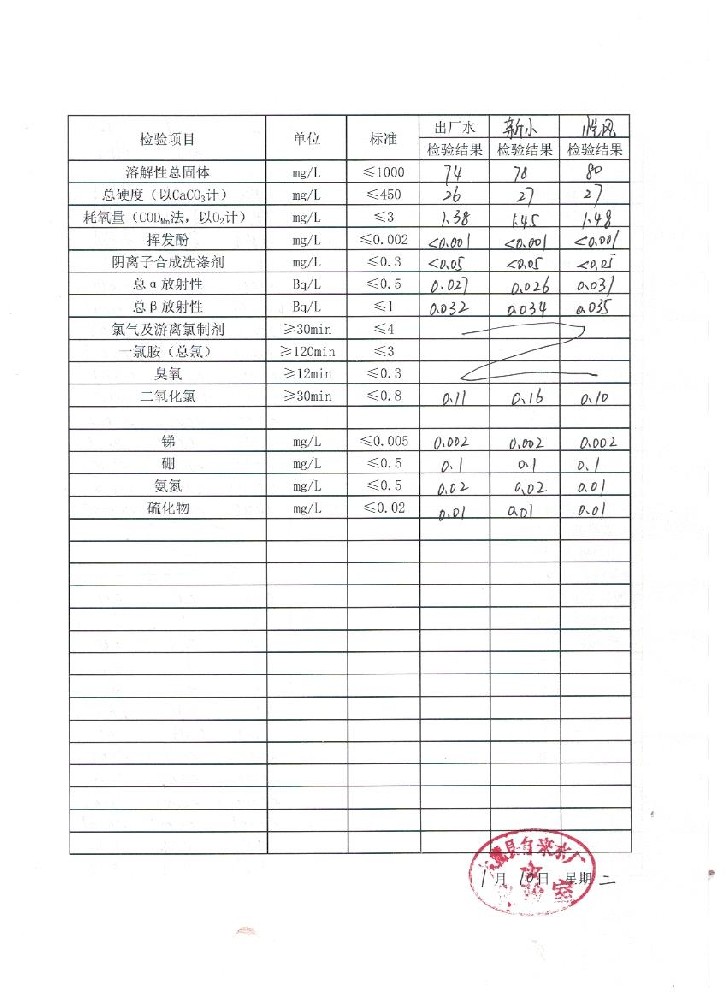 检验项目 单位 标准 出厂水 新小
检验结果 检验结果 检验结果
溶解性总固体 mg/L ≤1000 74 78 80
总硬度（以CaCO₃计） mg/L ≤450 26 27 27
耗氧量（CODMn法，以O₂计） mg/L ≤3 1.38 1.45 1.48
挥发酚 mg/L ≤0.002 <0.001 <0.001 <0.001
阴离子合成洗涤剂 mg/L ≤0.3 <0.05 <0.05 <0.05
总α放射性 Bq/L ≤0.5 0.027 0.026 0.031
总β放射性 Bq/L ≤1 0.032 0.034 0.035
氯气及游离氯制剂 ≥30min ≤4
一氯胺（总氯） ≥120min ≤3
臭氧 ≥12min ≤0.3
二氧化氯 ≥30min ≤0.8 0.11 0.16 0.10
锑 mg/L ≤0.005 0.002 0.002 0.002
硼 mg/L ≤0.5 0.1 0.1 0.1
氨氮 mg/L ≤0.5 0.02 0.02 0.01
硫化物 mg/L ≤0.02 0.01 0.01 0.01
县自来水厂
1月10日 星期二
化验室